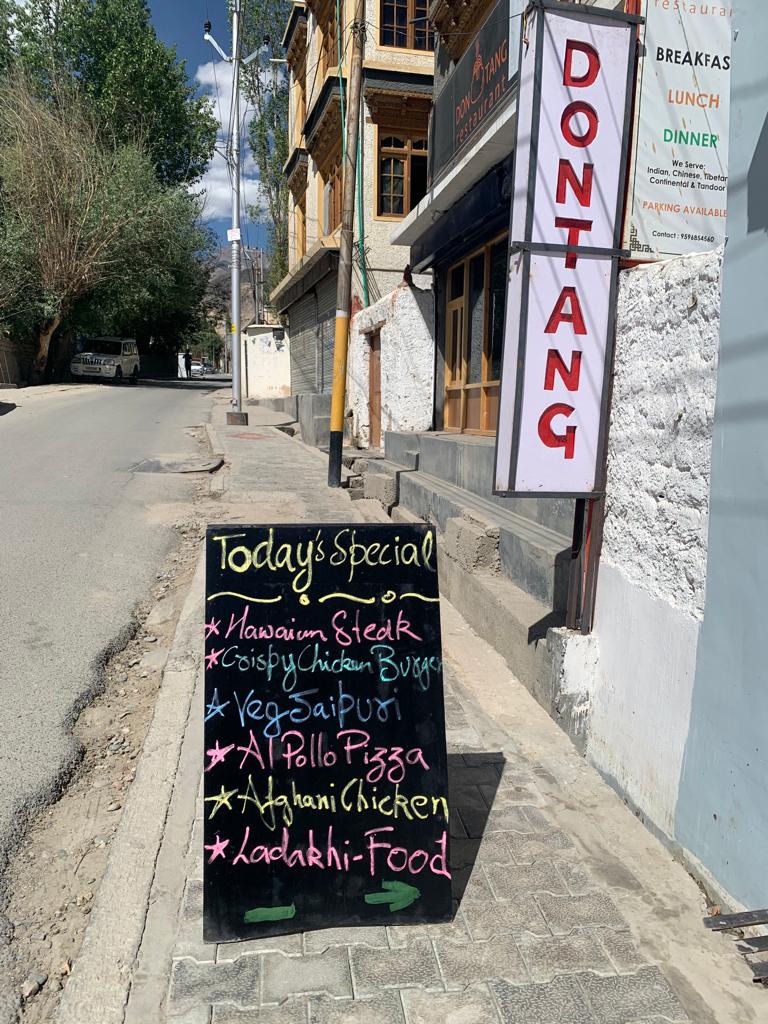 restaurant
BREAKFAS
LUNCH
DINNER
We Serve:
Indian, Chinese, Tibetan
Continental & Tandoor
PARKING AVAILABLE
Contact : 9596854560
DON TANG
restaurant
DONTANG
Today's Special
Hawaiian Steak
Crispy Chicken Burger
Veg Jaipuri
Al Pollo Pizza
Afghani Chicken
Ladakhi-Food